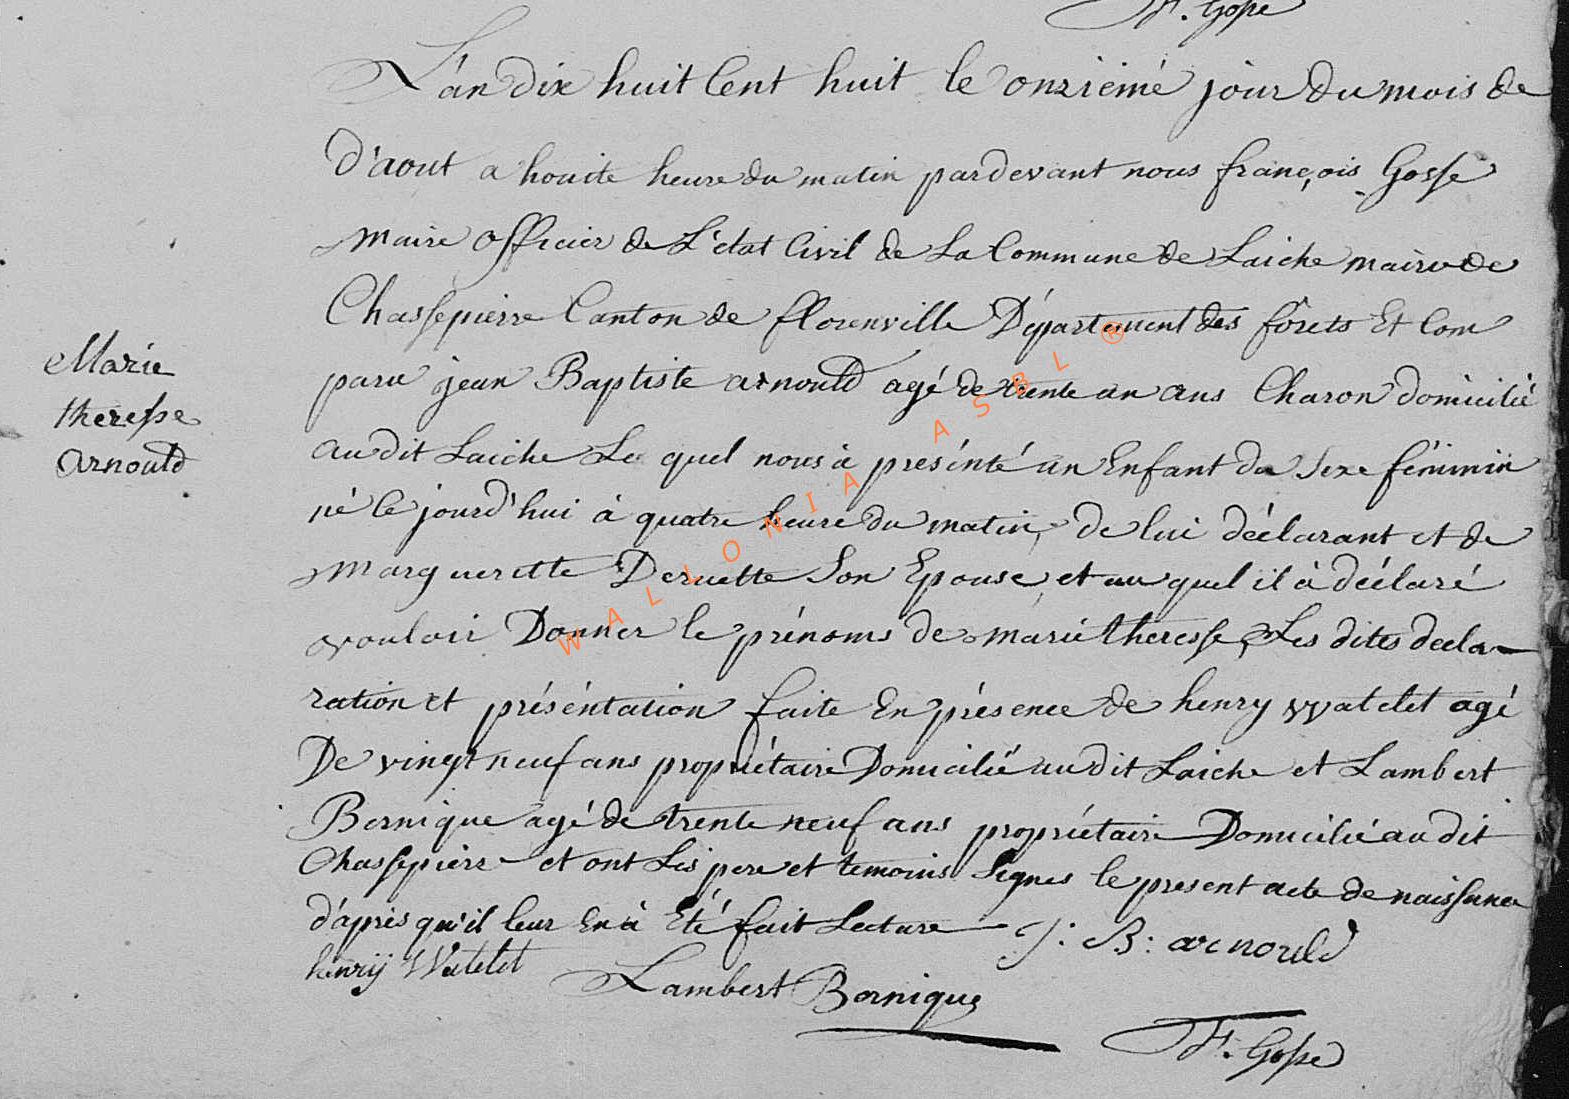 F. Gosse
L'an dix huit Cent huit le onzieme jour du mois de
d'aout a houite heure du matin pardevant nous françois Gosse
Maire officier de L'état Civil de La Commune de Laiche mairie de
Chassepierre Canton de florenville Département des forets Et Com
paru jean Baptiste arnould agé de trente un ans Charon domicilié
audit Laiche Le quel nous à présénté un Enfant du Sexe féminin
Marie
theresse
Arnould
né Ce jourd'hui à quatre heure du matin, de lui déclarant et de
Marguerette Deruette Son Epouse, et au quel il à déclaré
vouloir Donner le prénoms de marie theresse, Les dites decla-
ration et présentation faite En présence de henry Watelet agé
De vingt neuf ans propriétaire Domicilié audit Laiche et Lambert
Bornique agé de trente neuf ans propriétaire Domicilié audit
Chassepierre et ont Les pere et temoins Signes le present acte de naissance
d'après qu'il leur En à Eté fait Lecture J: B: arnould
henrÿ Watelet
Lambert Bornique
F. Gosse
WALLONIA ASBL ®